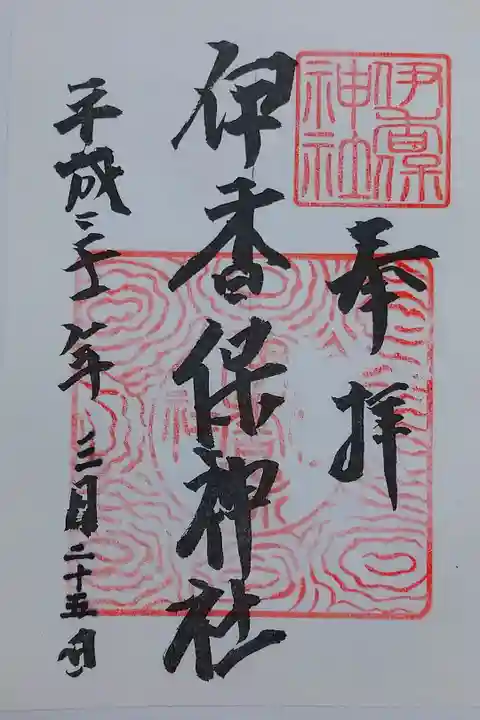 伊香保神社
奉拝
伊香保神社
平成三十年三月二十五日